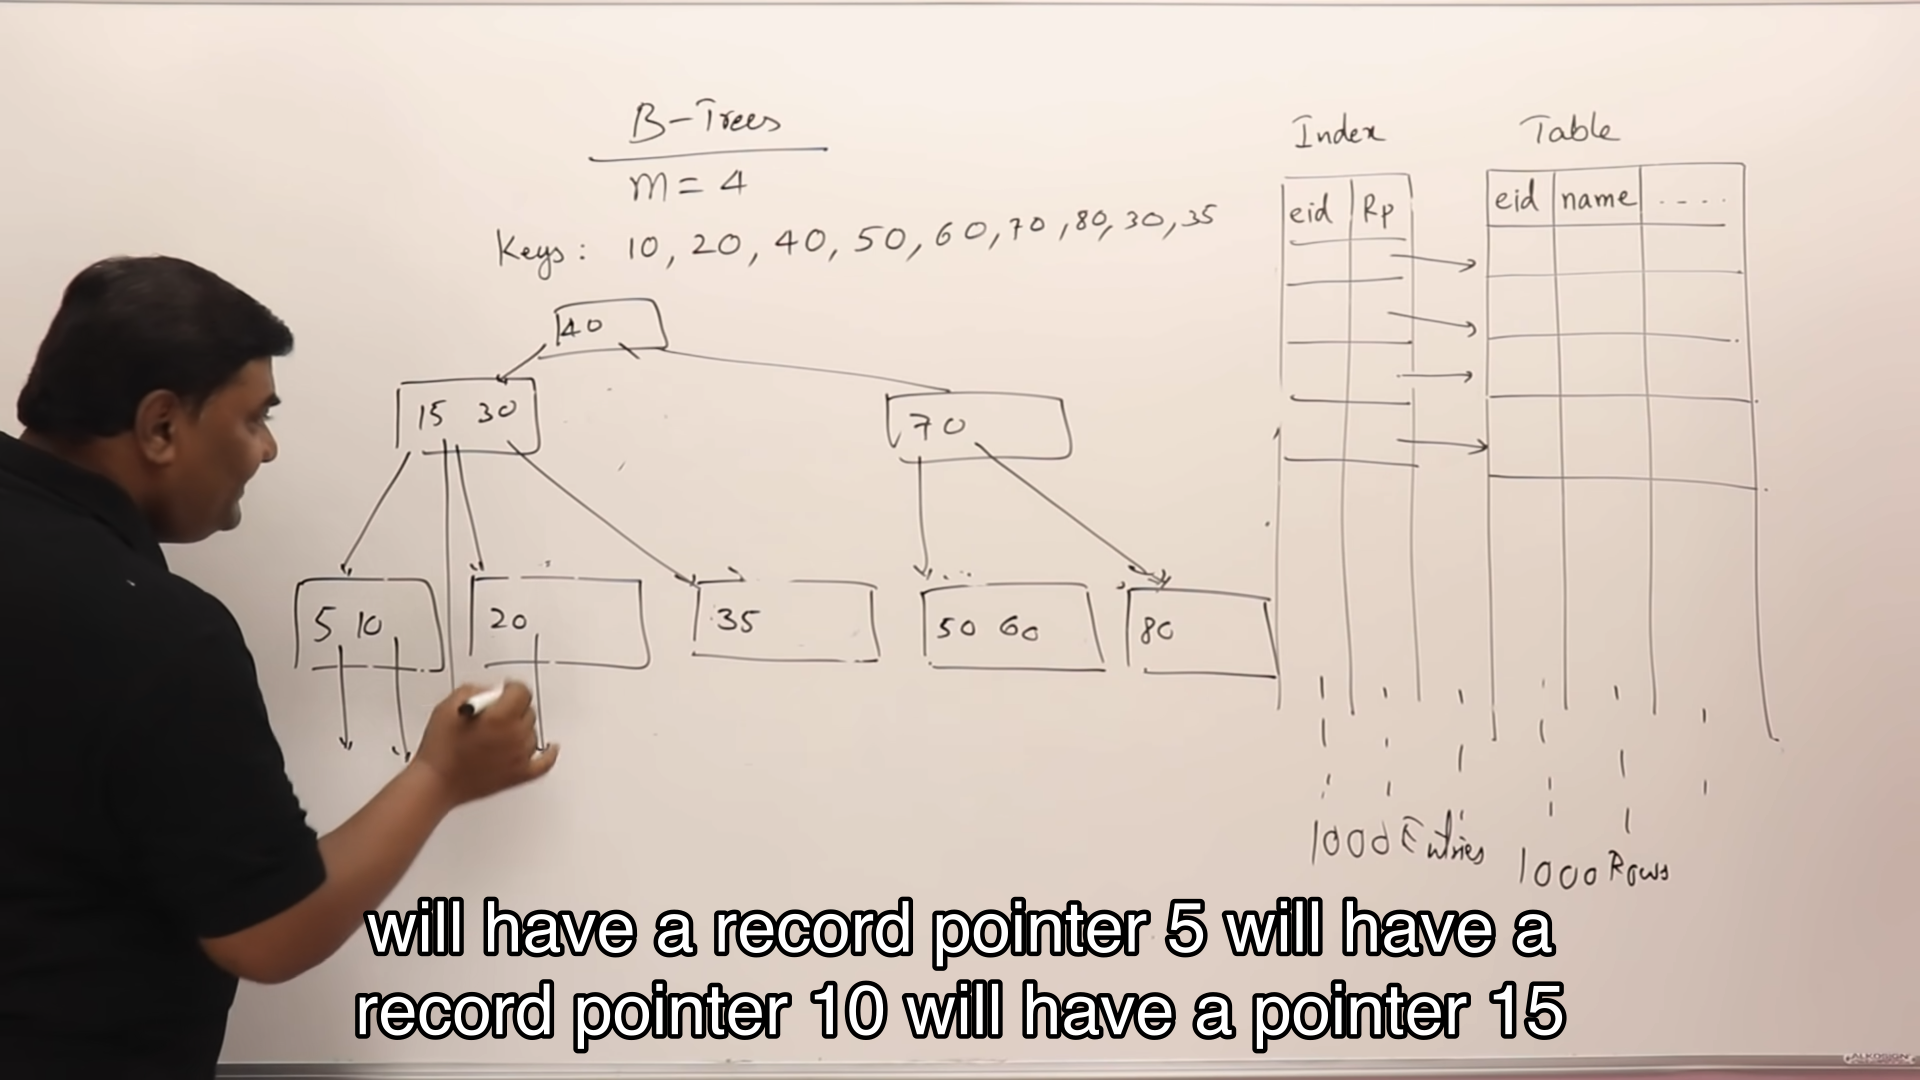 B-Trees
m = 4
Keys: 10, 20, 40, 50, 60, 70, 80, 30, 35
40
15 30
70
5 10
20
35
50 60
80
Index
eid Rp
1000 Entries
Table
eid name ....
1000 Rows
will have a record pointer 5 will have a
record pointer 10 will have a pointer 15